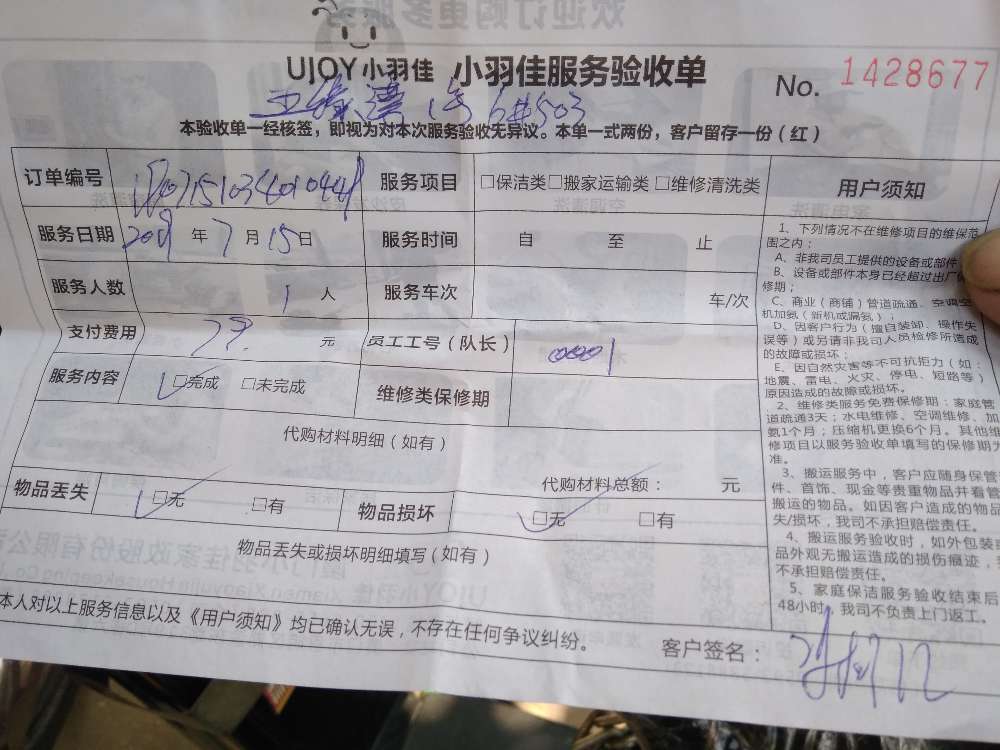 UJOY小羽佳 小羽佳服务验收单 No. 1428677
1号 6#503
本验收单一经核签，即视为对本次服务验收无异议。本单一式两份，客户留存一份（红）
订单编号 服务项目 □保洁类□搬家运输类 □维修清洗类
服务日期 2019 年 7 月 15 日 服务时间 自 至 止
服务人数 1 人 服务车次 车/次
支付费用 元 员工工号（队长） 00001
服务内容 □完成 □未完成 维修类保修期
代购材料明细（如有）
代购材料总额： 元
物品丢失 □无 □有 物品损坏 □无 □有
物品丢失或损坏明细填写（如有）
本人对以上服务信息以及《用户须知》均已确认无误，不存在任何争议纠纷。
客户签名：
用户须知
1、下列情况不在维修项目的维保范
围之内：
A、非我司员工提供的设备或部件
B、设备或部件本身已经超过出厂保
修期；
C、商业（商铺）管道疏通、空调空
机加氨（新机或漏氨）；
D、因客户行为（擅自装卸、操作失
误等）或另请非我司人员检修所造成
的故障或损坏；
E、因自然灾害等不可抗拒力（如：
地震、雷电、火灾、停电、短路等）
原因造成的故障或损坏。
2、维修类服务免费保修期：家庭管
道疏通3天；水电维修、空调维修、加
氨1个月；压缩机更换6个月。其他维
修项目以服务验收单填写的保修期为
准。
3、搬运服务中，客户应随身保管
件、首饰、现金等贵重物品并看管
搬运的物品。如因客户造成的物品
失/损坏，我司不承担赔偿责任。
4、搬运服务验收时，如外包装或
品外观无搬运造成的损伤痕迹，
不承担赔偿责任。
5、家庭保洁服务验收结束后
48小时，我司不负责上门返工。